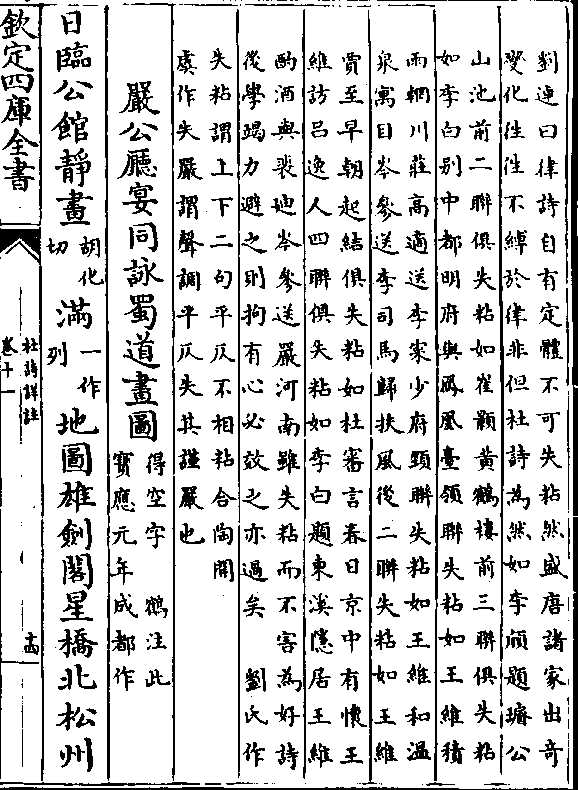 劉連曰律詩自有定體不可失粘然盛唐諸家出奇
變化往往不縛於律非但杜詩為然如李頎題璿公
山池前二聯俱失粘如崔顥黃鶴樓前三聯俱失粘
如李白别中都明府與鳳凰臺領聯失粘如王維積
雨輞川莊高適送李寀少府頸聯失粘如王維和温
泉寓目岑參送李司馬歸扶風後二聯失粘如王維
賈至早朝起結俱失粘如杜審言春日京中有懷王
維訪呂逸人四聯俱失粘如李白題東溪隱居王維
酌酒與裴迪岑參送嚴河南雖失粘而不害為好詩
後學竭力避之則拘有心必效之亦過矣 劉氏作
失粘謂上下二句平仄不相粘合陶開
虞作失嚴謂聲調平仄失其謹嚴也
嚴公廳宴同詠蜀道畫圖 得空字 鶴注此
寶應元年成都作
日臨公館靜畫 胡化
切 滿 一作
列 地圖雄劍閣星橋北松州
欽定四庫全書
杜詩詳註
卷十一
十四